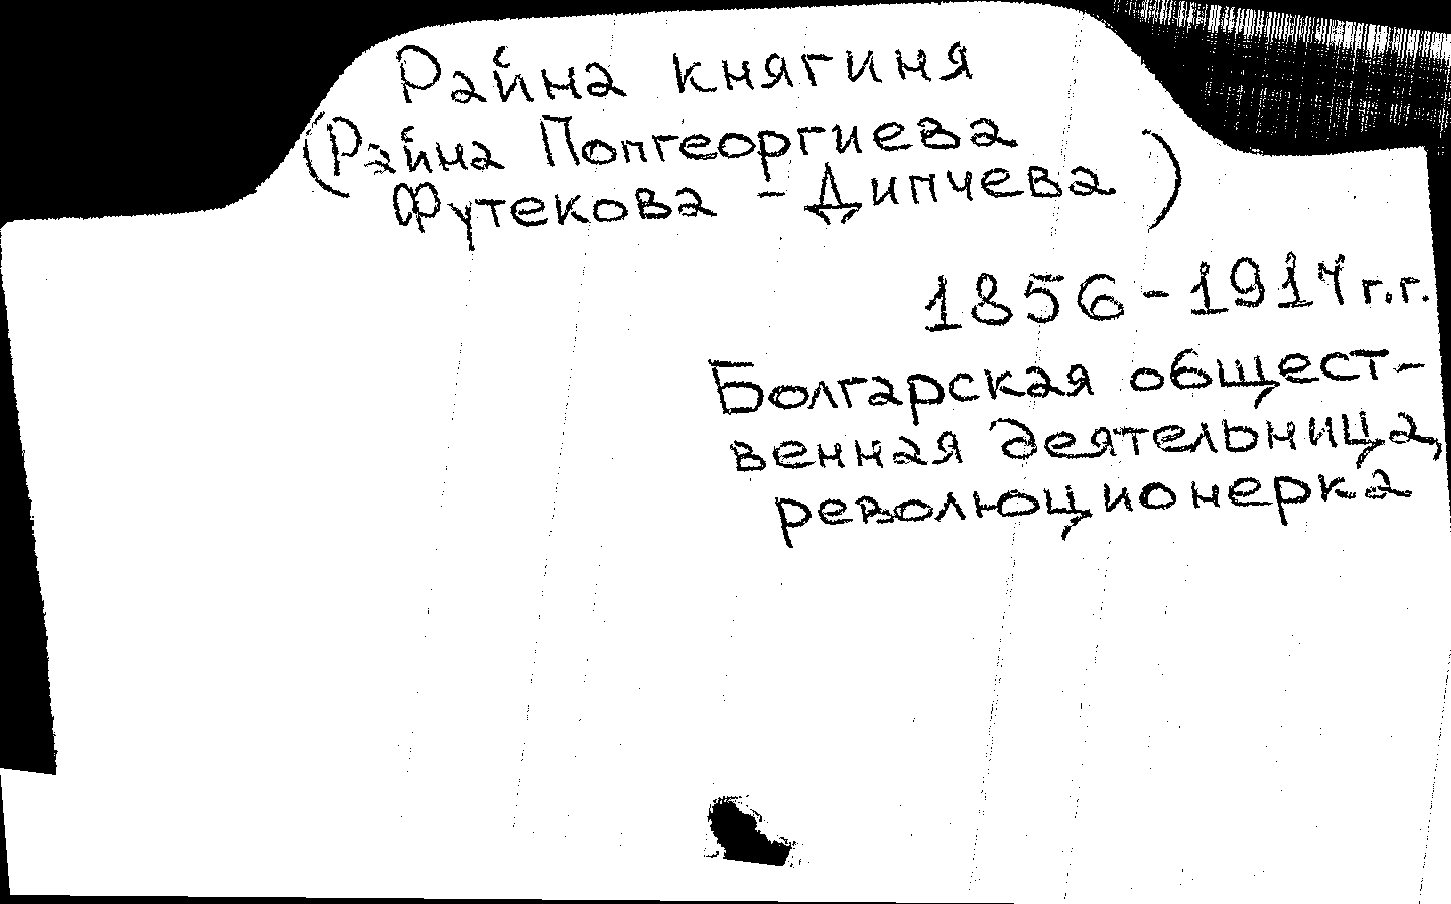 Райна княгиня
(Райна Попгеоргиева
Футекова - Дипчева)
1856-1917 г.г.
Болгарская общест-
венная деятельница,
революционерка